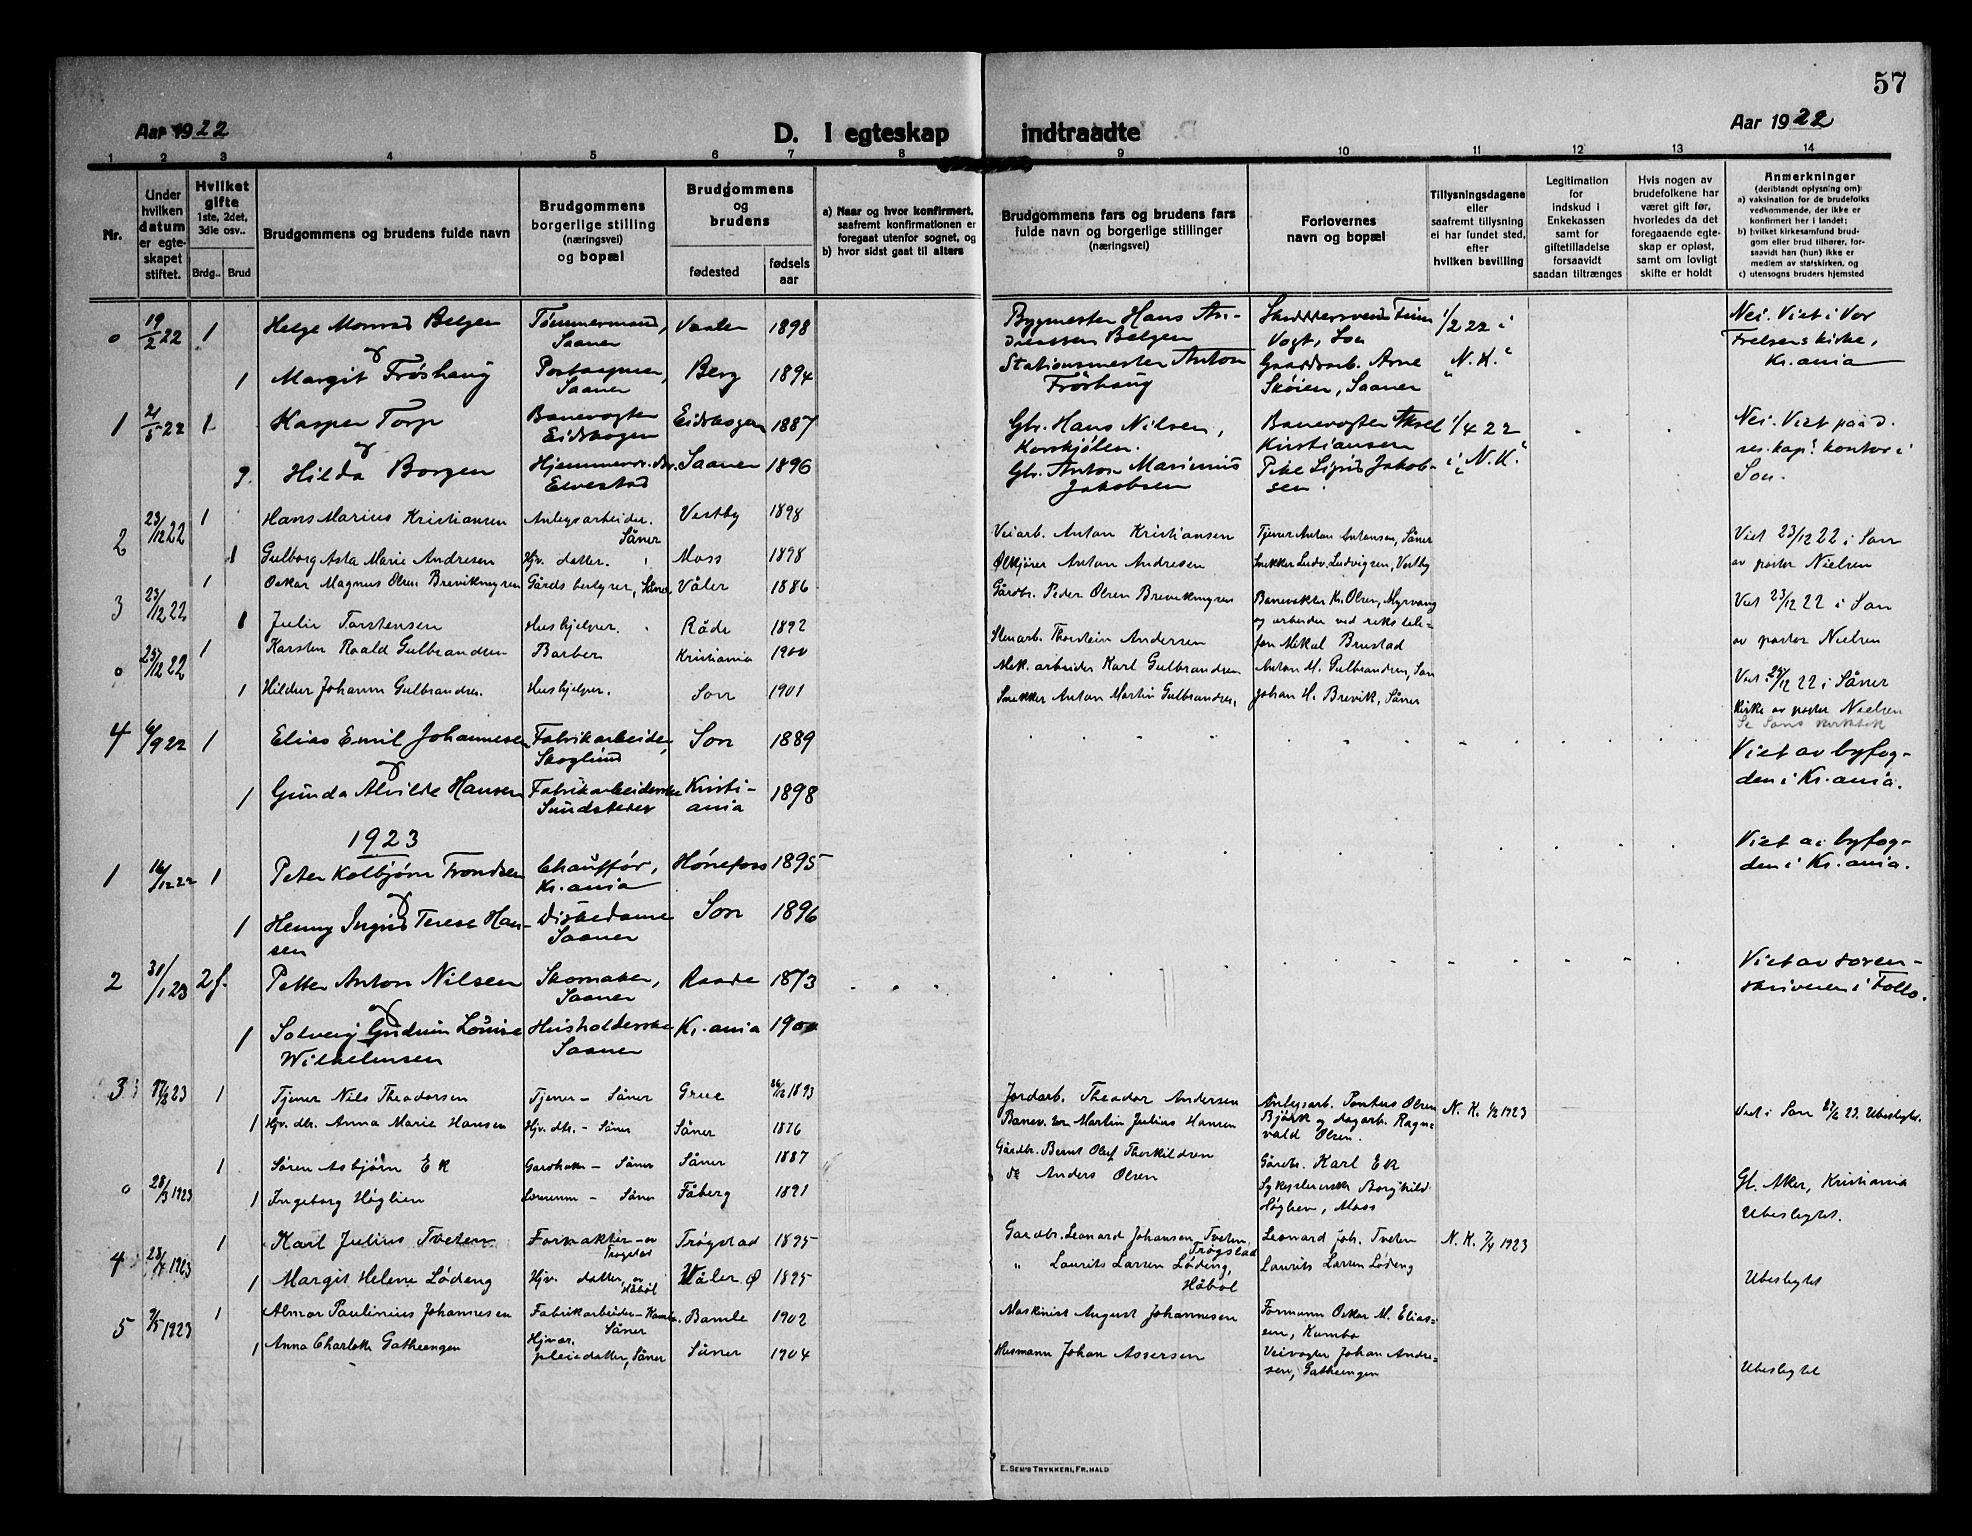 57
Aar 1922
D. I egteskap indtraadte
Aar 1922
1 2 3 4 5 6 7 8 9 10 11 12 13 14
Nr.
Under hvilken datum er egteskapet stiftet.
Hvilket gifte 1ste, 2det, 3die osv..
Brdg.. Brud
Brudgommens og brudens fulde navn
Brudgommens borgerlige stilling (næringsvei) og bopæl
Brudgommens og brudens
fødested
fødsels aar
a) Naar og hvor konfirmert, saafremt konfirmationen er foregaat utenfor sognet, og
b) hvor sidst gaat til alters
Brudgommens fars og brudens fars fulde navn og borgerlige stillinger (næringsvei)
Forlovernes navn og bopæl
Tillysningsdagene eller saafremt tillysning ei har fundet sted, efter hvilken bevilling
Legitimation for indskud i Enkekassen samt for giftetilladelse forsaavidt saadan tiltrænges
Hvis nogen av brudefolkene har været gift før, hvorledes da det foregaaende egteskap er opløst, samt om lovligt skifte er holdt
Anmerkninger
(deriblandt oplysning om):
a) vaksination for de brudefolks vedkommende, der ikke er konfirmert her i landet;
b) hvilket kirkesamfund brudgom eller brud tilhører, forsaavidt han (hun) ikke er medlem av statskirken, og
c) utensogns bruders hjemsted
0 19/2 22 1 Helge Monrad Belgen Tømmermand, Saaner Vaaler 1898 Bygmester Hans Andreassen Belgen Skræddersvend Finn Vogt, Son 1/2 22 i Nei. Viet i Vor Frelsers kirke, Kr.ania
og
1 Margit Frøshaug Saaner Berg 1894 Stationsmester Anton Frøshaug Gaardsarb. Arne Skøien, Saaner "N. K."
1 21/5 22 1 Kasper Torp Banevogter Eidskogen Eidskogen 1887 Gbr. Hans Nilsen, Korskjølen. Banevogter Aksel Kristiansen 1/4 22 Nei. Viet paa d. res. kap! kontor i Son.
og
Hilda Borgen Elvestad Saaner 1896 Gbr. Anton Marinius Jakobsen Pike Sigrid Jakobsen. i "N. K."
2 23/12 22 1 Hans Marius Kristiansen Anlegsarbeider. Såner Vestby 1898 Veiarb. Anton Kristiansen Tjener Anton Antonsen, Såner Viet 23/12 22 i Son
1 Gulborg Asta Marie Andresen Hjv. datter. Moss 1898 Ølkjører Anton Andresen Snekker Ludv. Ludvigsen, Vestby av pastor Nielsen
3 23/12 22 1 Oskar Magnus Olsen Brevikmyren Gårdsbestyrer, Såner, Våler 1886 Gårdbr. Peder Olsen Brevikmyren Banevokter Kr. Olsen, Myrvang Viet 23/12 22 i Son
1 Julie Torstensen Hushjelper. Råde 1892 Stenarb. Thorstein Andersen og arbeider ved rikstelefon Mikal Brustad av pastor Nielsen
0 25/12 22 1 Karsten Roald Gulbrandsen Barber Kristiania 1900 Mek. arbeider Karl Gulbrandsen Anton M. Gulbrandsen, Son Viet 25/12 22 i Såner
1 Hildur Johanne Gulbrandsen. Hushjelper. Son 1901 Snekker Anton Martin Gulbrandsen, Johan H. Brevik, Såner kirke av pastor Nielsen
4 6/9 22 1 Elias Emil Johannesen Fabrikarbeider, Skoglund Son 1889 Viet av byfogden i Kr.ania.
og
1 Gunda Alvilde Hansen Fabrikarbeiderske Kristiania 1898
1923
1 16/12 22 1 Peter Kolbjørn Trondsen Chauffør, Kr.ania Hønefoss 1895 Viet av byfogden i Kr.ania.
og
1 Henny Ingrid Terese Hansen Diskedame Saaner Son 1896
2 31/1 23 2 f. Petter Anton Nilsen Skomaker, Saaner Raade 1873 Viet av sorenskriveren i Follo.
og
1 Solveig Gudrun Louise Wilhelmsen Husholderske Saaner Kr.ania 1900
3 17/2 23 1 Tjener Nils Theodorsen Tjener - Såner Grue 26/12 1893 Jordarb. Theodor Andersen Anlegsarb. Pontus Olsen N. K. 1/2 1923
1 Hjv. dtr. Anna Marie Hansen Hjv. dtr. - Såner Såner 1876 Banev. Martin Julius Hansen Bjørk og dagarb. Ragnvald Olsen. Ubeslegtet.
0 28/3 1923 1 Søren Asbjørn Ek Såner Såner 1887 Gårdbr. Bernt Oluf Thorkildsen Gårdbr. Karl Ek Gl. Aker, Kristiania
1 Ingeborg Høglien Lærerinne - Såner Fåberg 1891 do Anders Olsen Sykepleierske Borghild Høglien, Moss Ubeslegtet.
4 28/4 1923 1 Karl Julius Tveten Forpakter - av Trøgstad Trøgstad 1895 Gardbr. Leonard Johansen Tveten, Trøgstad Leonard Joh. Tveten N. K. 7/4 1923
1 Margit Helene Lødeng Hjv. datter, av Håbøl Våler Ø 1895 " Laurits Larsen Lødeng, Håbøl Laurits Larsen Lødeng Ubeslegtet
5 1923 1 Almar Paulinius Johannesen Fabrikarbeider - Såner Bamle 1902 Maskinist August Johannesen Formann Oskar M. Eliassen, Kambo
1 Anna Charlotte Gatheengen Hjvær. pleiedatter, Såner Såner 1904 Husmann Johan Assersen Veivogter Johan Andresen, Gatheengen Ubeslegtet
E. SEM'S TRYKKERI, FR.HALD